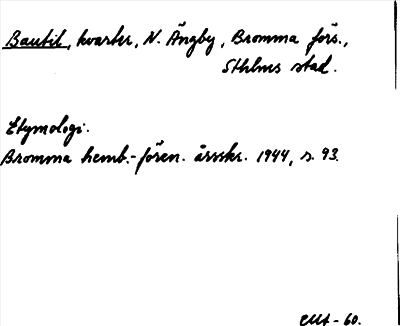 Bautil, kvarter, N. Ängby, Bromma förs.,
Sthlms stad.
Etymologi.
Bromma hemb.-fören. årsskr. 1944, s. 93.
-60.